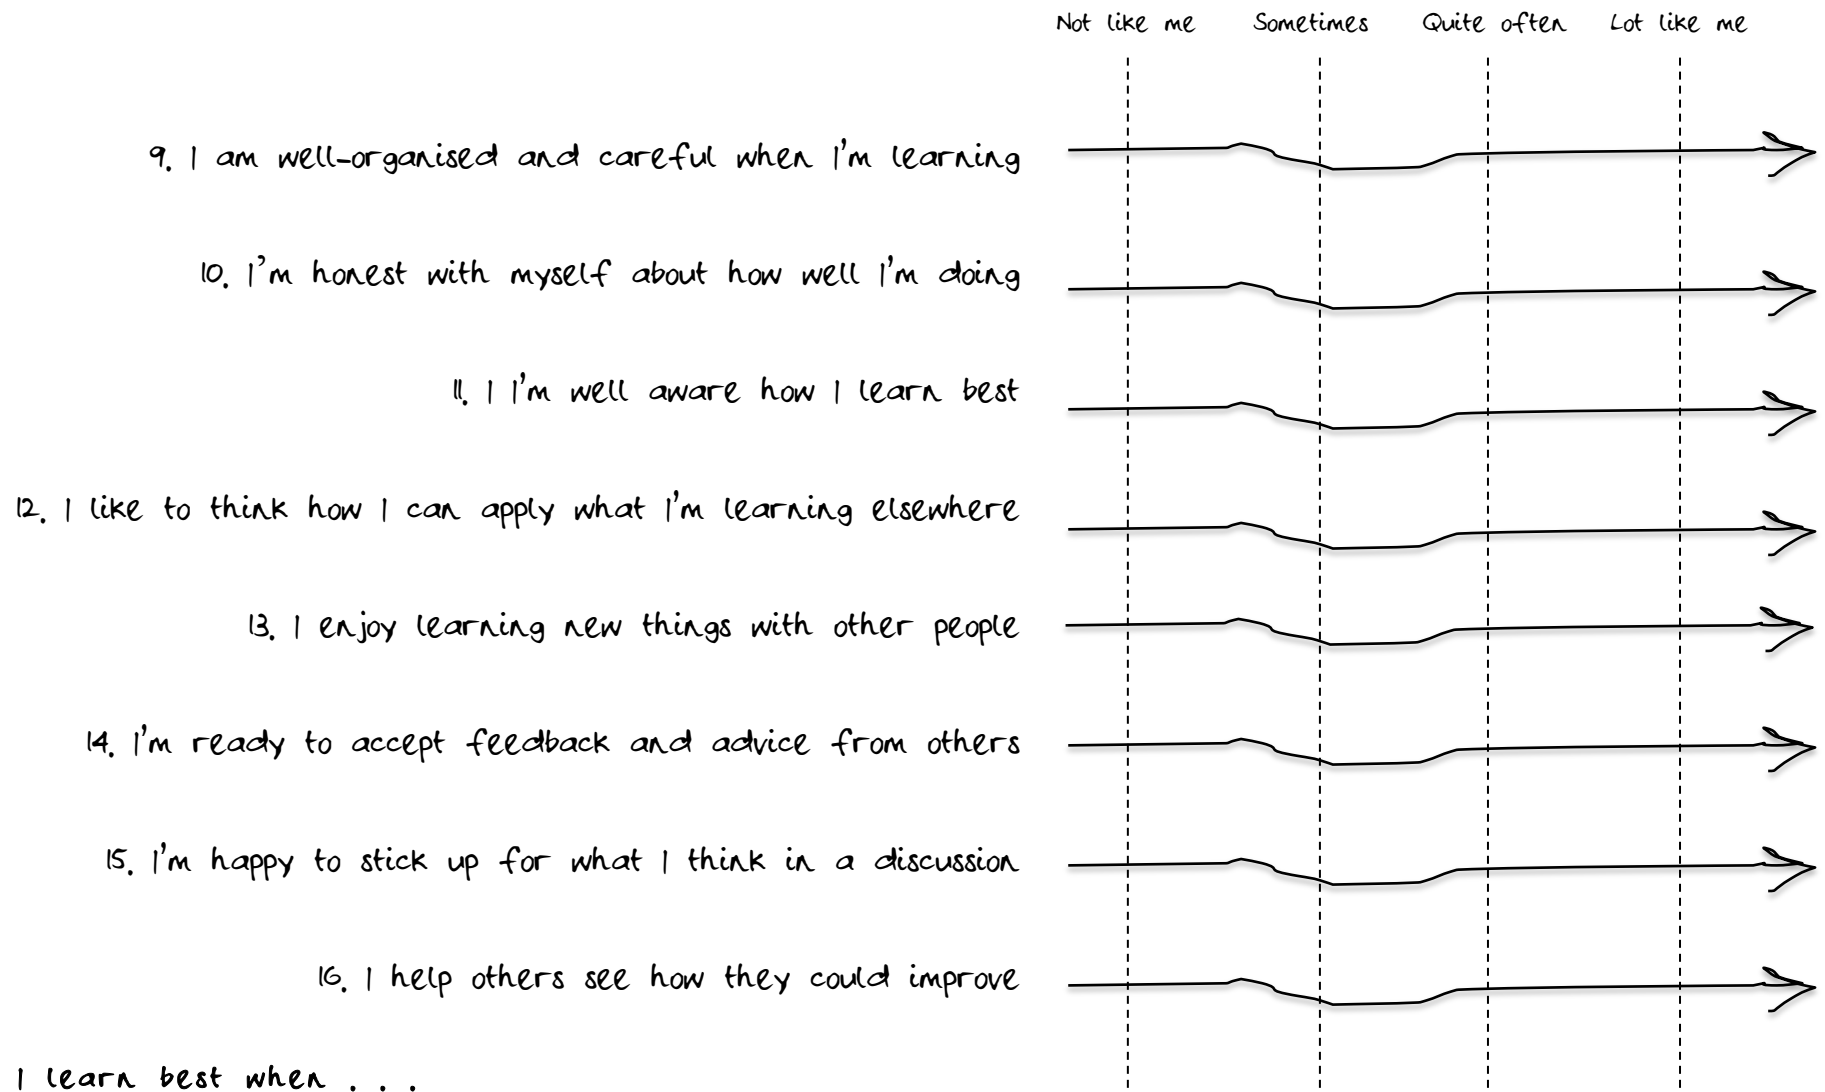 Not like me Sometimes Quite often Lot like me
9. I am well-organised and careful when I'm learning
10. I'm honest with myself about how well I'm doing
11. I I'm well aware how I learn best
12. I like to think how I can apply what I'm learning elsewhere
13. I enjoy learning new things with other people
14. I'm ready to accept feedback and advice from others
15. I'm happy to stick up for what I think in a discussion
16. I help others see how they could improve
I learn best when . . .